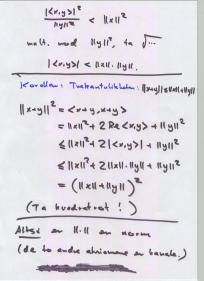 |<x,y>|² / ||y||² < ||x||²
mult. med ||y||², ta √…
|<x,y>| < ||x||·||y||.
Korollar: Trekantulikheten: ||x+y||≤||x||+||y||
||x+y||² = <x+y,x+y>
= ||x||² + 2 Re<x,y> + ||y||²
≤ ||x||² + 2|<x,y>| + ||y||²
≤ ||x||² + 2||x||·||y|| + ||y||²
= (||x|| + ||y||)²
(Ta kvadratrot!)
Altså er ||·|| en norm
(de to andre aksiomene er banale.)